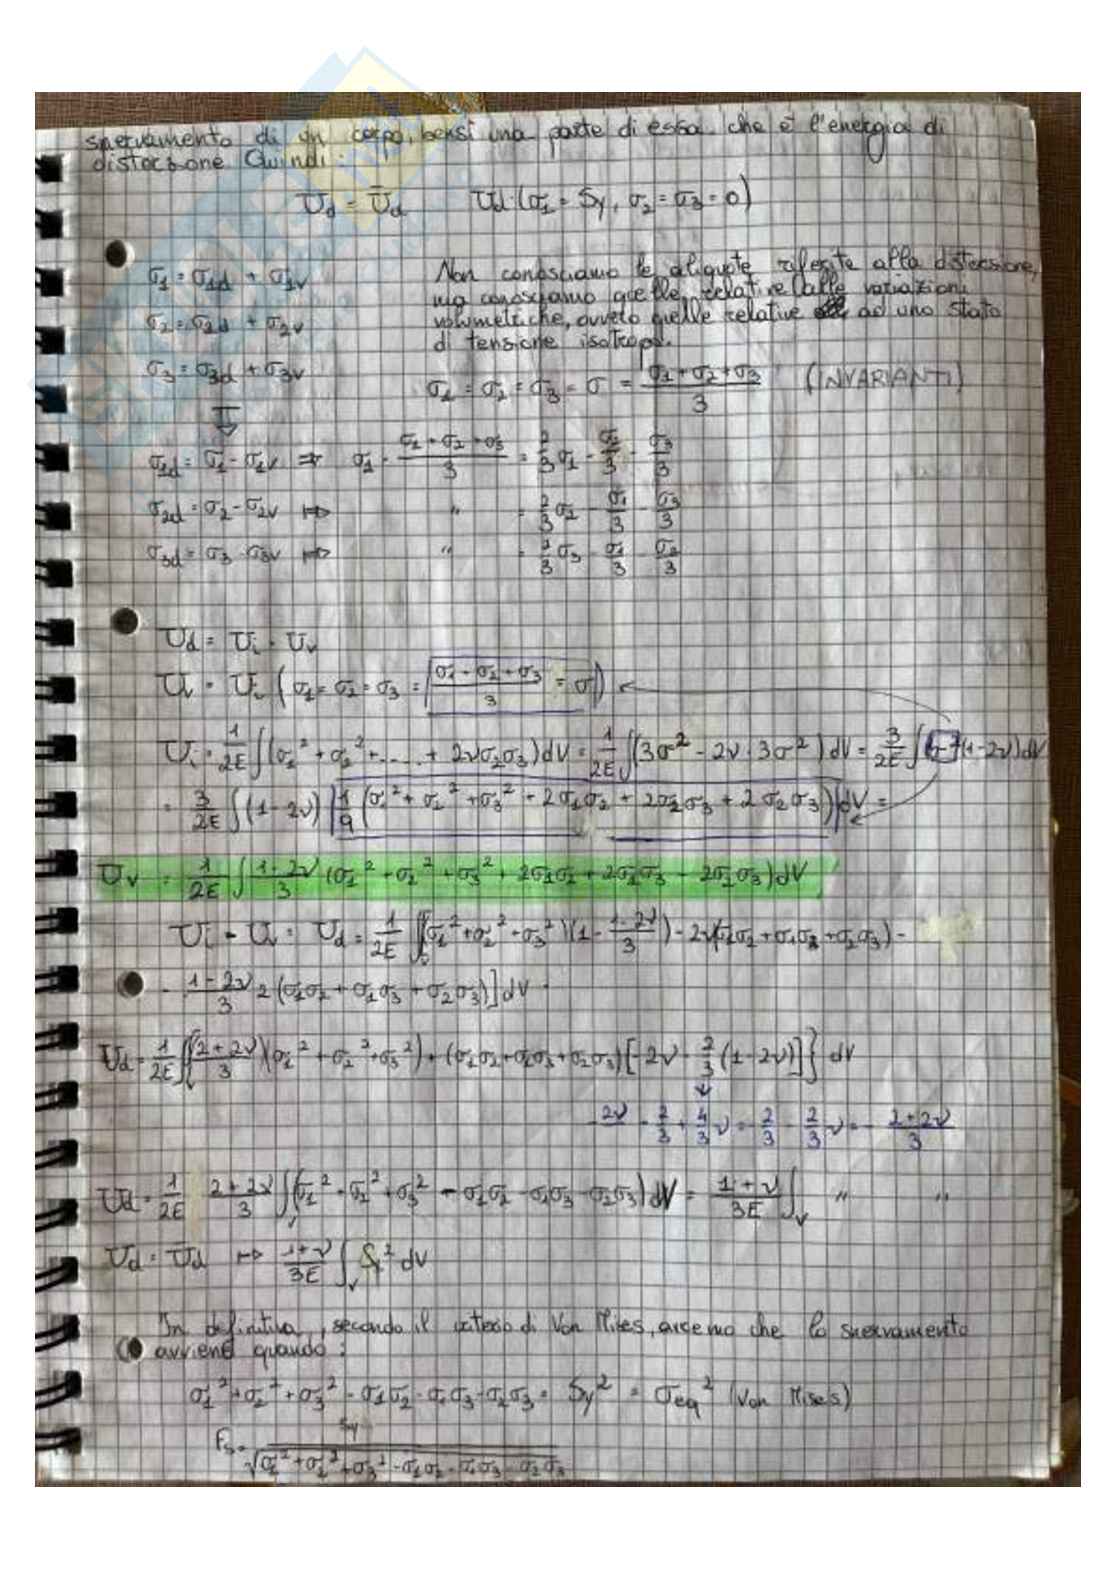 snervamento di un corpo, bensì una parte di essa che è l'energia di
distorsione Quindi:
U_d = Ū_d    U_d (σ1 = Sy, σ2 = σ3 = 0)
σ1 = σ1d + σ1v
σ2 = σ2d + σ2v
σ3 = σ3d + σ3v
Non conosciamo le aliquote riferite alla distorsione,
ma conosciamo quelle relative alle variazioni
volumetriche, ovvero quelle relative ad uno stato
di tensione isotropo.
σ1 = σ2 = σ3 = σ = (σ1 + σ2 + σ3)/3    (INVARIANTI)
⇓
σ1d = σ1 - σ1v ⇒ σ1 - (σ1 + σ2 + σ3)/3 = 2/3 σ1 - σ2/3 - σ3/3
σ2d = σ2 - σ2v ↦ " = 2/3 σ2 - σ1/3 - σ3/3
σ3d = σ3 - σ3v ↦ " = 2/3 σ3 - σ1/3 - σ2/3
U_d = U_i - U_v
U_v = U_i (σ1 = σ2 = σ3 = (σ1 + σ2 + σ3)/3 = σ)
U_i = 1/2E ∫(σ1² + σ2² + ..... + 2νσ2σ3) dV = 1/2E ∫(3σ² - 2ν · 3σ²) dV = 3/2E ∫ (1-2ν) dV
= 3/2E ∫(1-2ν) 1/9 (σ1² + σ2² + σ3² + 2σ1σ2 + 2σ2σ3 + 2σ2σ3) dV =
U_v = 1/2E ∫ (1-2ν)/3 (σ1² + σ2² + σ3² + 2σ1σ2 + 2σ1σ3 + 2σ2σ3) dV
U_i - U_v = U_d = 1/2E ∫[(σ1² + σ2² + σ3²)(1 - (1-2ν)/3) - 2ν(σ1σ2 + σ1σ3 + σ2σ3) -
- (1-2ν)/3 2 (σ1σ2 + σ1σ3 + σ2σ3)] dV =
U_d = 1/2E ∫{(2+2ν)/3 (σ1² + σ2² + σ3²) + (σ1σ2 + σ1σ3 + σ2σ3) [-2ν - 2/3 (1-2ν)]} dV
↓
-2ν - 2/3 + 4/3 ν = -2/3 - 2/3 ν = - (2+2ν)/3
U_d = 1/2E (2+2ν)/3 ∫v (σ1² + σ2² + σ3² - σ1σ2 - σ1σ3 - σ2σ3) dV = (1+ν)/3E ∫v " "
U_d = Ū_d ↦ (1+ν)/3E ∫v Sy² dV
In definitiva, secondo il criterio di Von Mises, avremo che lo snervamento
avviene quando:
σ1² + σ2² + σ3² - σ1σ2 - σ1σ3 - σ2σ3 = Sy² = σeq² (Von Mises)
Fs = Sy / √(σ1² + σ2² + σ3² - σ1σ2 - σ1σ3 - σ2σ3)